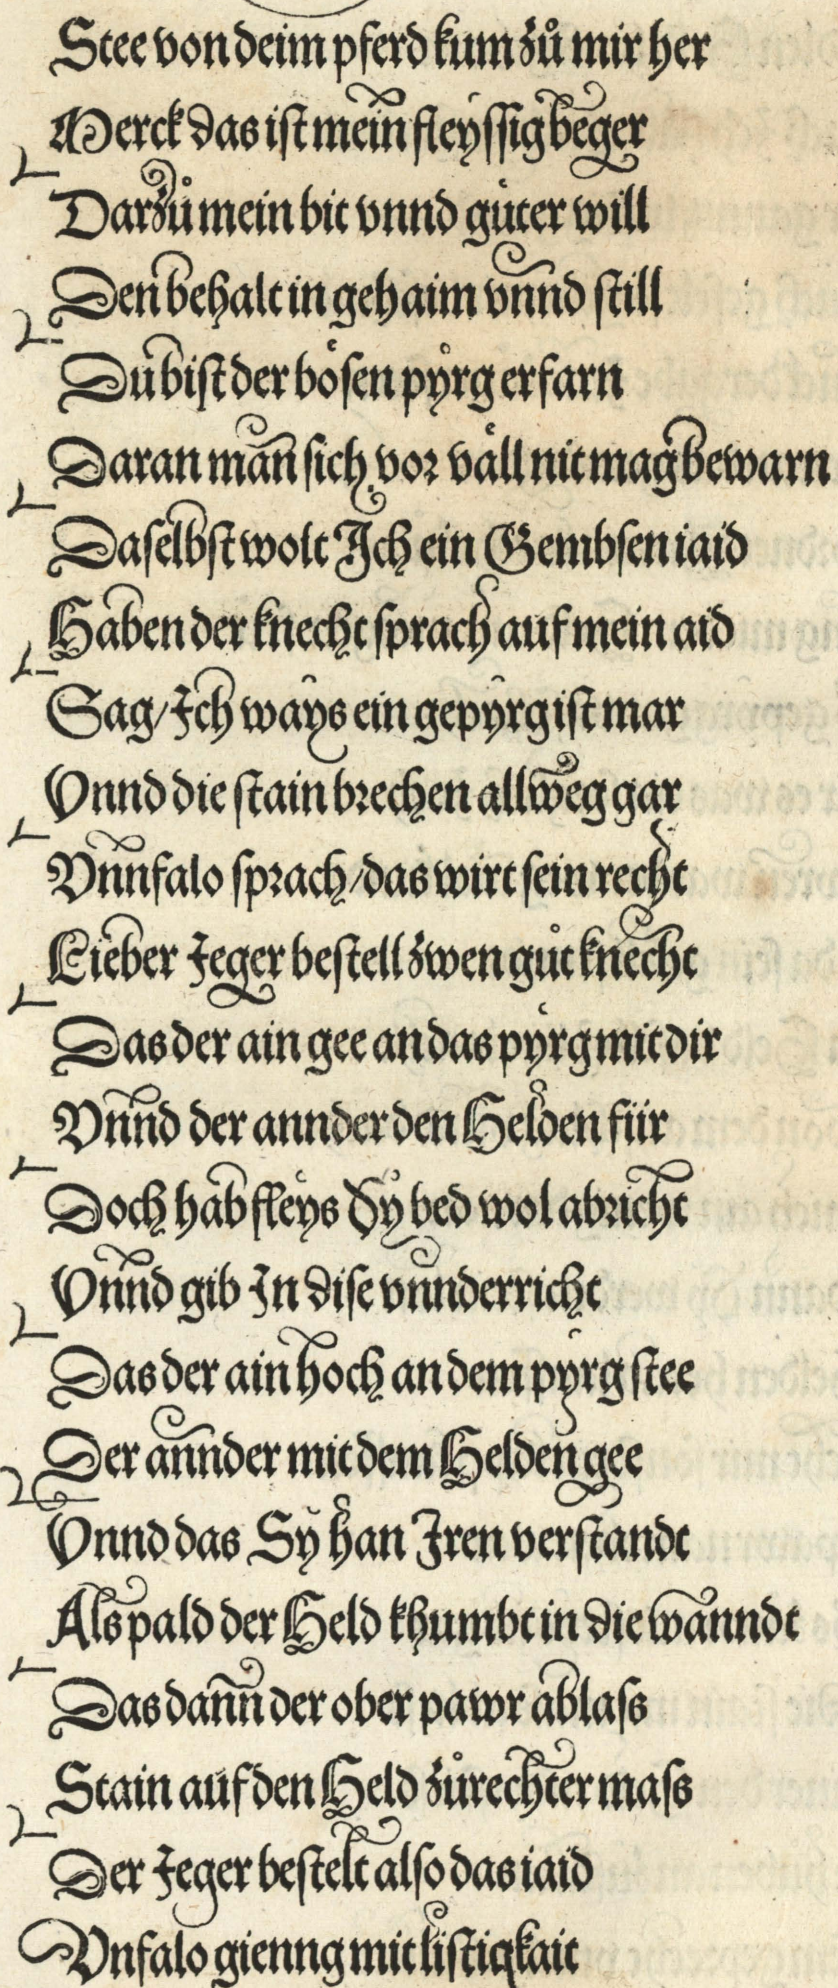 Stee von deim pferd kum zů mir her
Merck das ist mein fleyssig beger
Darzů mein bit vnnd gůter will
Den behalt in gehaim vnnd still
Du bist der bösen pÿrg erfarn
Daran man sich vor väll nit mag bewarn
Daselbst wolt Ich ein Gembsen iaid
Haben der knecht sprach auf mein aid
Sag/ Ich ways ein gepÿrg ist mar
Vnnd die stain brechen allweg gar
Vnnfalo sprach/ das wirt sein recht
Lieber Jeger bestell zwen gůt knecht
Das der ain gee an das pÿrg mit dir
Vnnd der annder den Helden für
Doch hab fleys Sy bed wol abricht
Vnnd gib In dise vnnderricht
Das der ain hoch an dem pÿrg stee
Der annder mit dem Helden gee
Vnnd das Sy han Iren verstandt
Als pald der Held khumbt in die wanndt
Das dann der ober pawr ablass
Stain auf den Held zů rechter mass
Der Jeger bestelt also das iaid
Vnfalo gienng mit listigkait